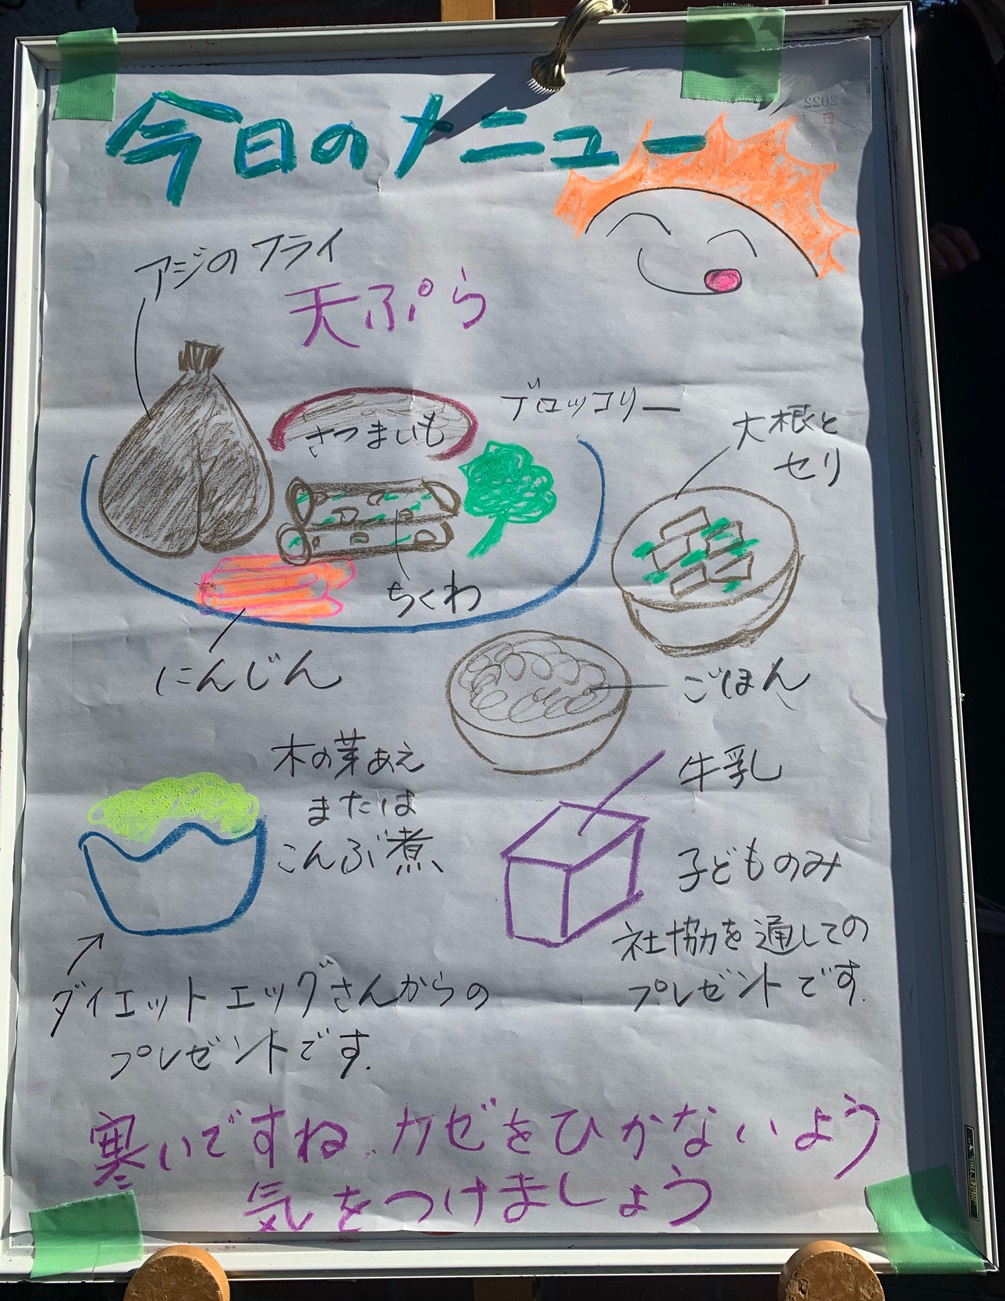 今日のメニュー
アジのフライ
天ぷら
さつまいも
ブロッコリー
大根と
セリ
ちくわ
にんじん
ごはん
木の芽あえ
または
こんぶ煮
牛乳
子どものみ
社協を通しての
プレゼントです.
ダイエットエッグさんからの
プレゼントです.
寒いですね、カゼをひかないよう
気をつけましょう